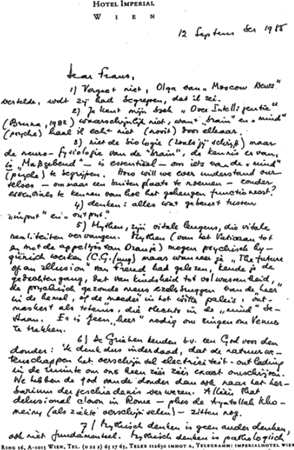 HOTEL IMPERIAL
WIEN
12 September 1988
Dear Frans,
1) Vergeet niet, Olga van "Moscow News"
vertelde, wat zij had begrepen, dat ik zei.
2) Je kent mijn boek "Over Intelligentie"
(Bruna, 1982) waarschijnlijk niet, want "brain" en "mind"
(psyche) haal ik echt niet (nooit) door elkaar.
3) niet de biologie (zoals jij schrijft) maar
de neuro-fysiologie van de "brain", de kennis ervan,
is "Maßgebend" — is essentieel — om iets van de "mind"
(psyche) te begrijpen. How will we ever understand our-
selves — om maar een buiten plaats te noemen — zonder
eerst iets te kennen van hoe het geheugen functioneert?
4) denken: alles wat gebeurt tussen
"input" en "output"
5) Mythen, zijn vitale leugens, die vitale
realiteiten vervangen. Mythen (van het Vaticaan tot
en met de appeltjes van Oranje) mogen psychisch hy-
giënisch werken (C.G. Jung) maar wanneer je "The future
of an illusion" van Freud had gelezen, kende je de
gedachtengang, dat van kindsheid tot volwassenheid,
de psychisch gezonde mens afbeeldingen van de heer
in de hemel, of de moeder in het witte paleis, ont-
maskert als totems, die slechts in de "mind" be-
staan. Er is geen "heer" nodig om ringen om Venus
te trekken.
6) De Grieken kenden b.v. een God voor den
donder. Ik denk dus inderdaad, dat de natuurwe-
tenschappen het verschijnsel electriciteit-ontlading
in de ruimte om ons heen zéér zéér exact omschrijven.
We hebben de god van de donder dan ook naar het her-
barium der geschiedenis verwezen. Alléén that
delusional clown in Rome — plus de Ayatollah Kho-
meiny (als ziekte verschijnselen) — zitten nog.
7) Mythisch denken is geen ander denken,
ook niet fundamenteel. Mythisch denken is pathologisch
RING 16, A-1015 WIEN, TEL. (0 22 2) 65 17 65, TELEX 112630 IMHOT A, TELEGRAMM: IMPERIALHOTEL WIEN